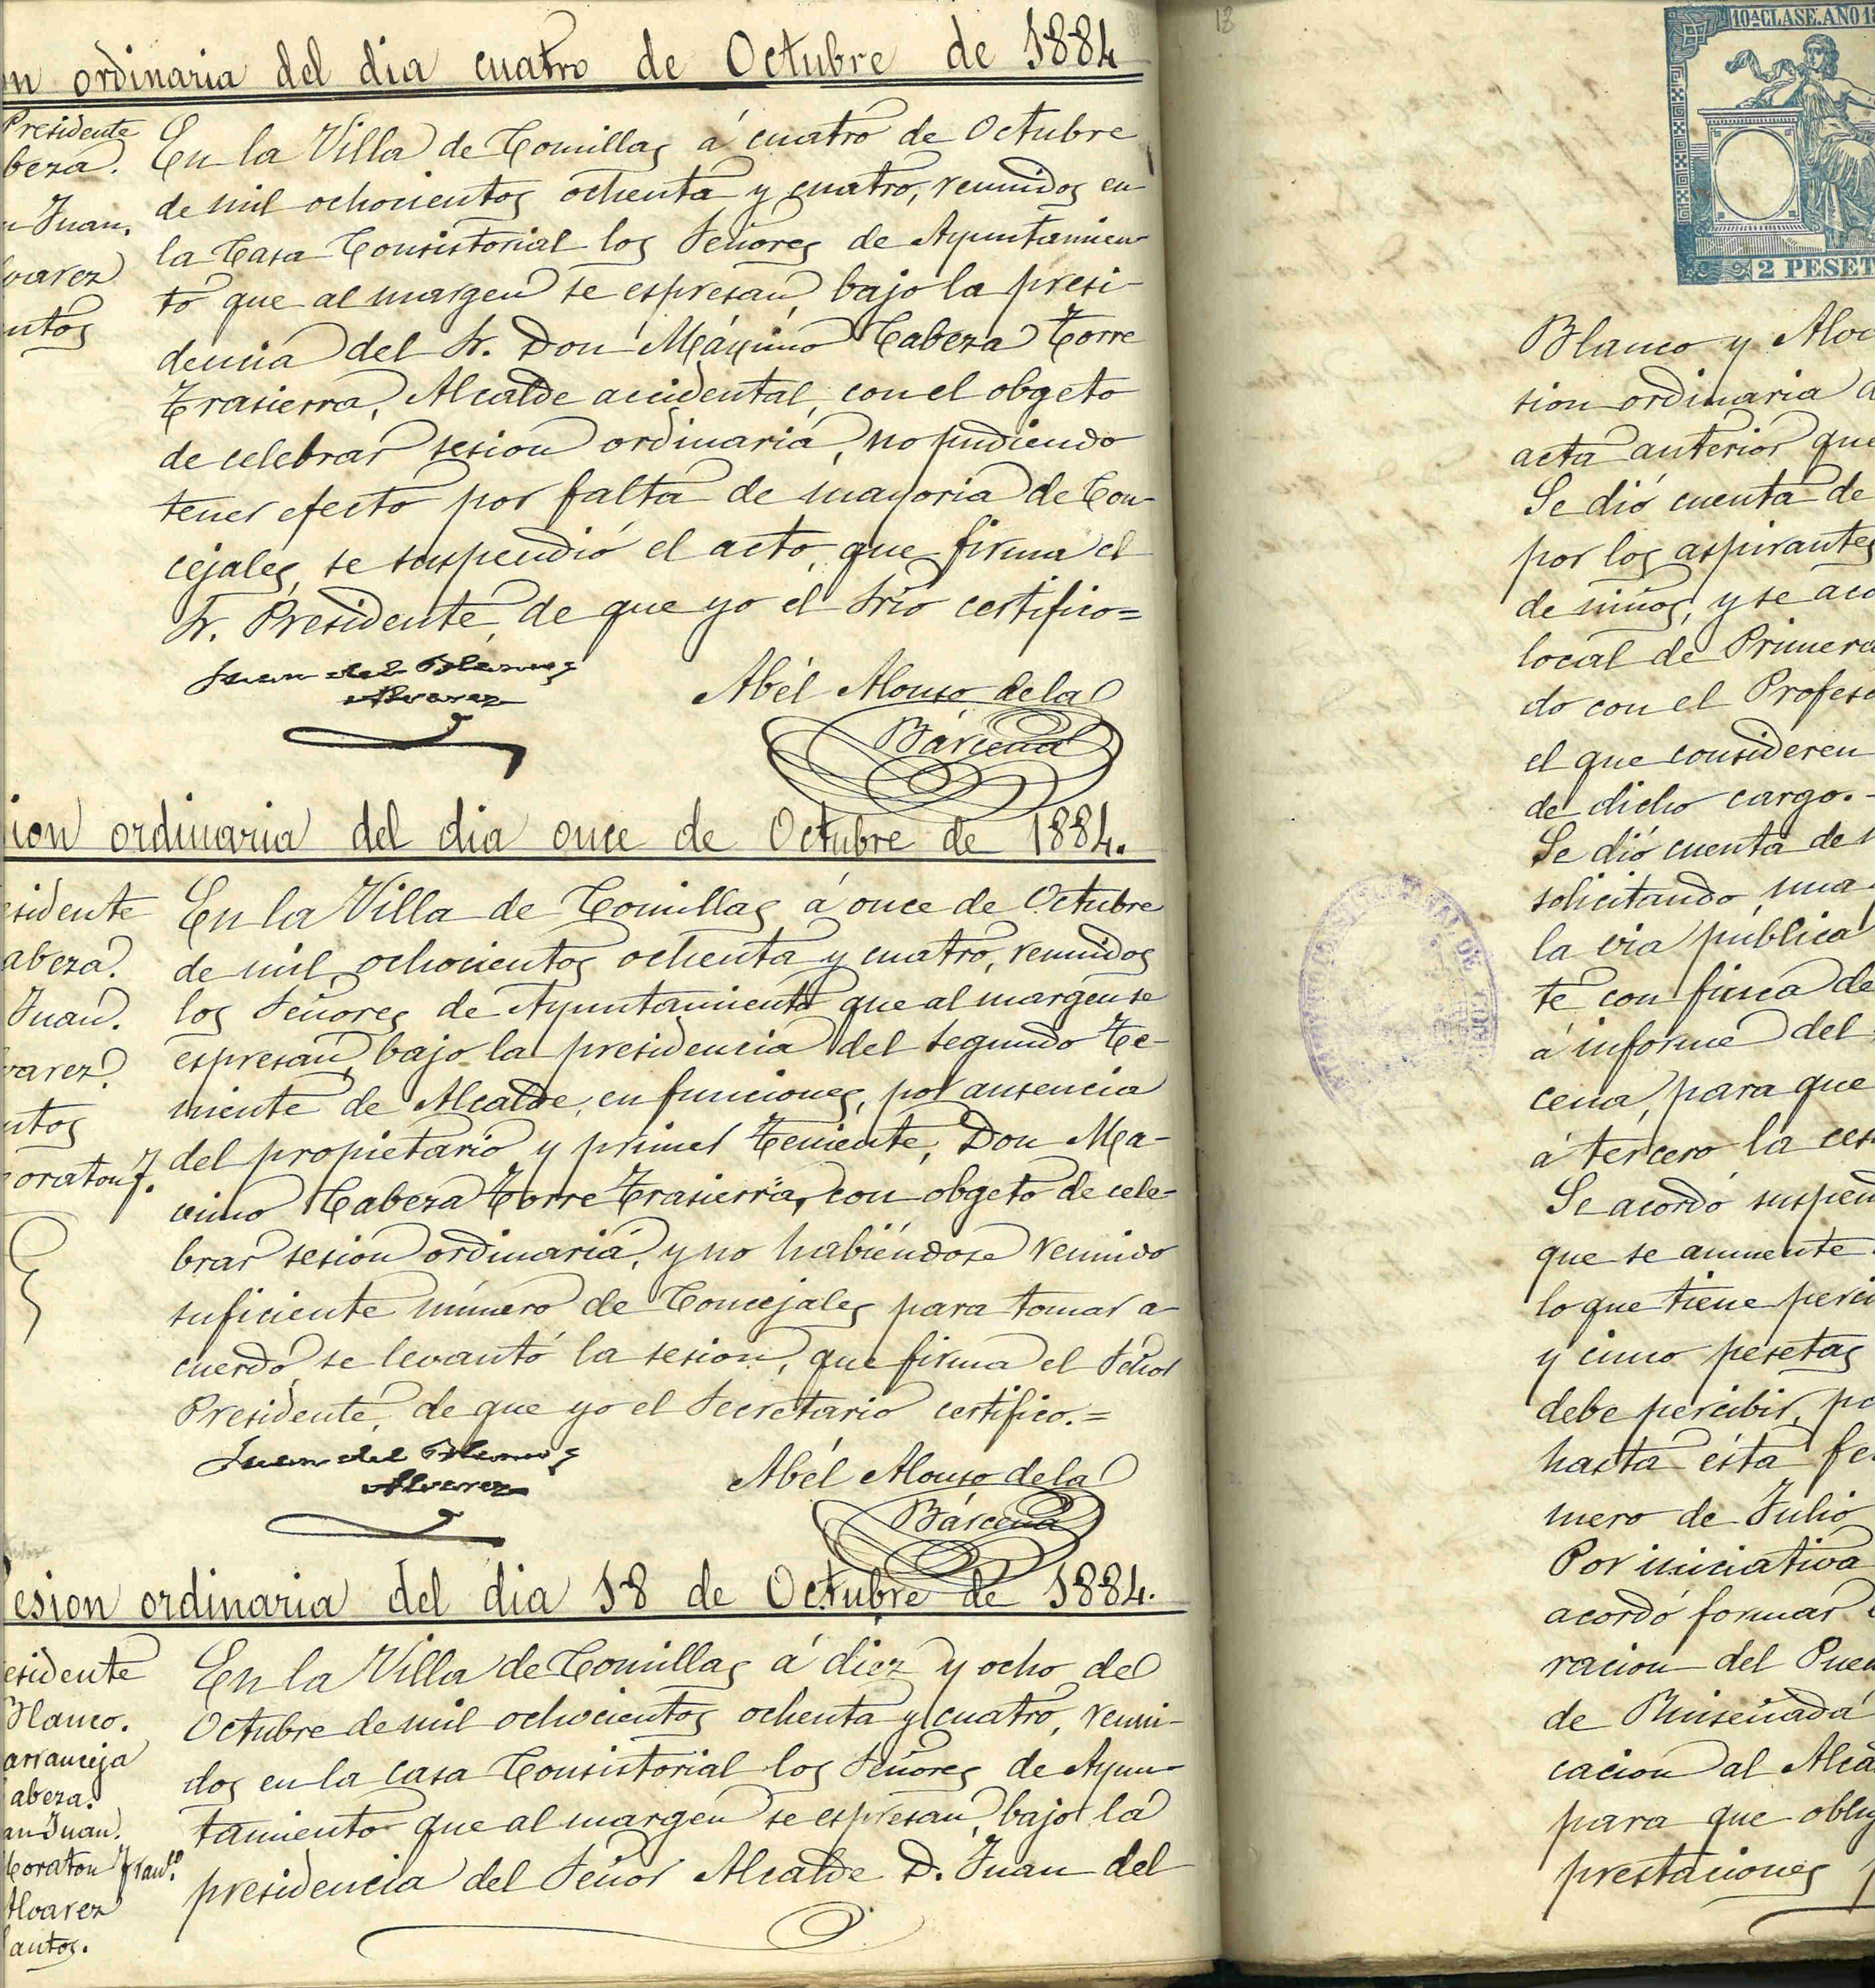 on ordinaria del dia cuatro de Octubre de 1884
Presidente
beza.
n Juan.
lvarez
ntos
En la Villa de Comillas á cuatro de Octubre
de mil ochocientos ochenta y cuatro, reunidos en
la Casa Consistorial los Señores de Ayuntamien-
to que al margen se espresan, bajo la presi-
dencia del Sr. Don Máximo Cabeza Torre
Trasierra, Alcalde accidental, con el obgeto
de celebrar sesion ordinaria, no pudiendo
tener efecto por falta de mayoria de Con-
cejales, se suspendió el acto, que firma el
Sr. Presidente, de que yo el Srio certifico=
Juan del Blanco
Alvarez
Abél Alonso de la
Bárcena
sion ordinaria del dia once de Octubre de 1884.
esidente
abeza.
Juan.
varez.
ntos
oraton f.
En la Villa de Comillas á once de Octubre
de mil ochocientos ochenta y cuatro, reunidos
los Señores de Ayuntamiento que al margen se
espresan, bajo la presidencia del segundo Te-
niente de Alcalde, en funciones, por ausencia
del propietario y primer Teniente, Don Ma-
ximo Cabeza Torre Trasierra, con obgeto de cele-
brar sesion ordinaria, y no habiéndose reunido
suficiente número de Concejales para tomar a-
cuerdo, se levantó la sesion, que firma el Señor
Presidente, de que yo el Secretario certifico.=
Juan del Blanco
Alvarez
Abél Alonso de la
Bárcena
Sesion ordinaria del dia 18 de Octubre de 1884.
esidente
Blanco.
arranceja
abeza.
an Juan.
Coraton Fran.co
Alvarez
antos.
En la Villa de Comillas á diez y ocho de
Octubre de mil ochocientos ochenta y cuatro, reuni-
dos en la casa Consistorial los Señores de Ayun-
tamiento que al margen se espresan, bajo la
presidencia del Señor Alcalde D. Juan del
10ª CLASE. AÑO 1
2 PESET
Blanco y Alv
sion ordinaria
acta anterior que
Se dió cuenta de
por los aspirantes
de niños, y se aco
local de Primera
do con el Profeso
el que consideren
de dicho cargo.-
Se dió cuenta de
solicitando una
la via pública
te con finca de
á informe del
cena, para que
á tercero la ces
Se acordó suspen
que se aumente
lo que tiene perci
y cinco pesetas
debe percibir, po
hasta ésta fe
mero de Julio
Por iniciativa
acordó formar
racion del Puen
de Ruiseñada
cacion al Alca
para que oblig
prestaciones